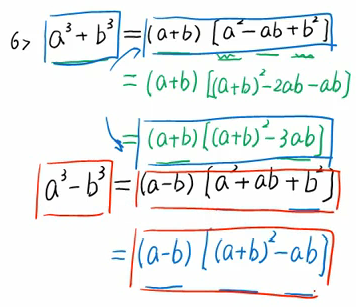 6> a³ + b³ = (a+b) [a² - ab + b²]
= (a+b) [(a+b)² - 2ab - ab]
= (a+b) [(a+b)² - 3ab]
a³ - b³ = (a-b) [a² + ab + b²]
= (a-b) [(a+b)² - ab]